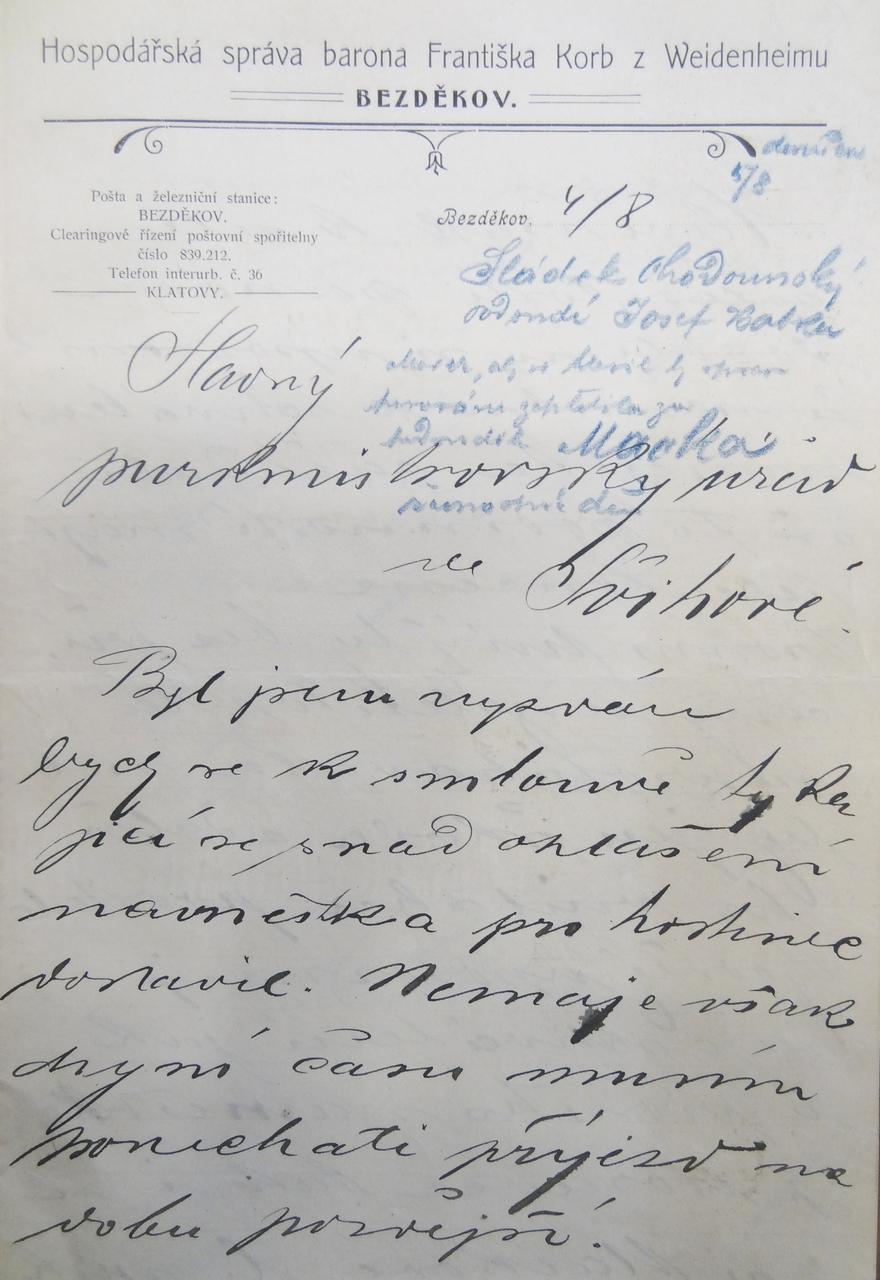 Hospodářská správa barona Františka Korb z Weidenheimu
BEZDĚKOV.
5/8
Pošta a železniční stanice:
BEZDĚKOV.
Clearingové řízení poštovní spořitelny
číslo 839.212.
Telefon interurb. č. 36
KLATOVY.
Bezděkov. 4/8
Sládek Chodounský
Josef
Slavný
purkmistrovský úřad
ve
Švihově.
Byl jsem vyzván
bych se k smlouvě týka
jící se snad ohlášení
návněstka pro hostinec
dostavil. Nemaje však
času musím
ponechati příjezd na
dobu pozdější.